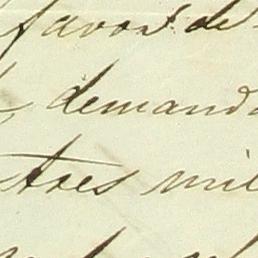 favor de
demand
tres mil